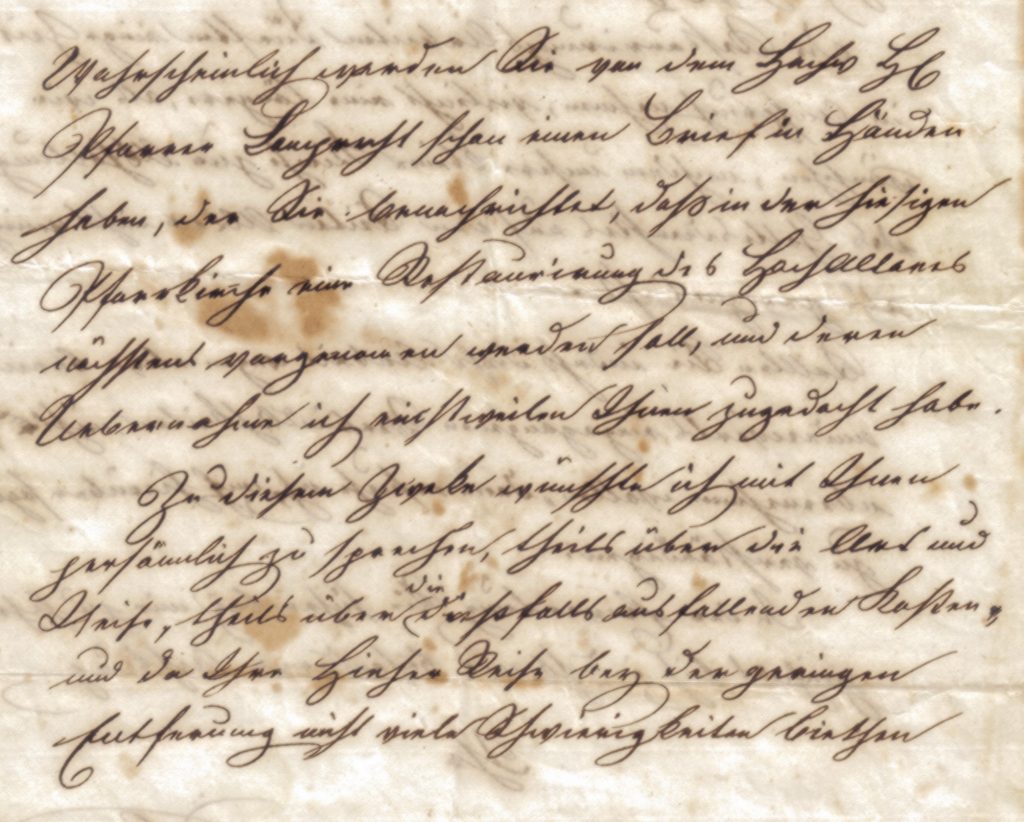 Wahrscheinlich werden Sie von dem Hochw H
Pfarrer Lamprecht schon einen Brief in Händen
haben, der Sie benachrichtet, daß in der hiesigen
Pfarrkirche eine Restaurirung des HochAltares
nächstens vorgenomen werden soll, und deren
Uebernahme ich einstweilen Ihnen zugedacht habe.
Zu diesem Zweke wünschte ich mit Ihnen
persönnlich zu sprechen, theils über die Art und
Weise, theils über die dießfalls ausfallenden Kosten,
und da Ihre Hieher Reise bey der geringen
Entfernung nicht viele Schwierigkeiten biethen